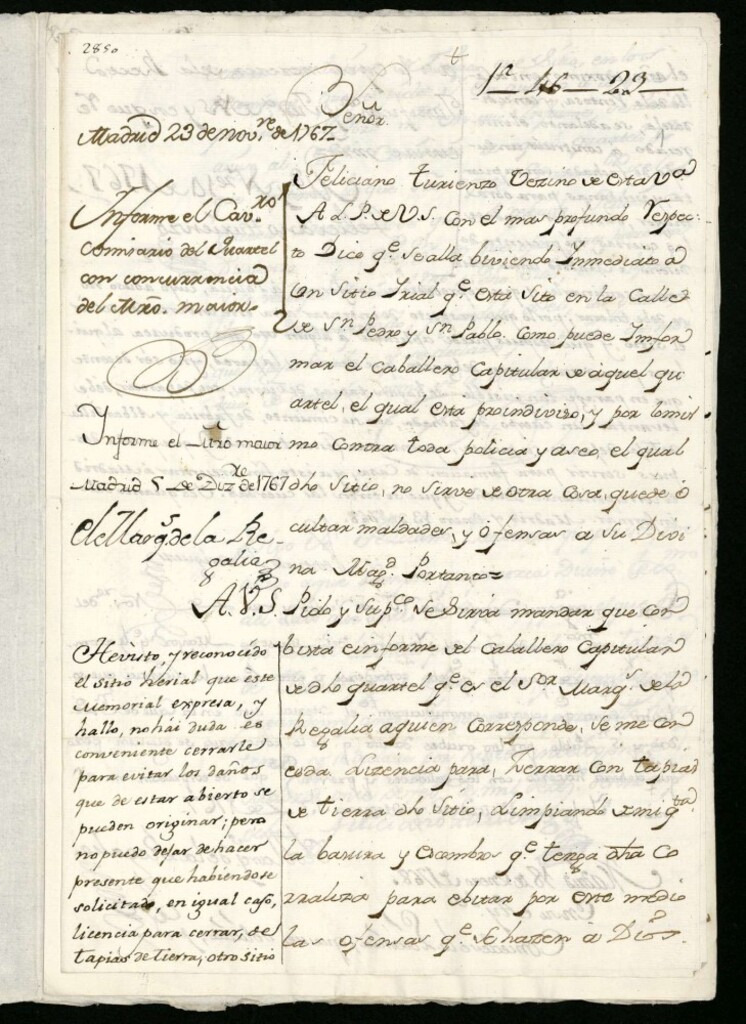 2850
1ª - 46 - 23
Señor.
Madrid 23 de nov.re de 1767
Informe el Cav.ro
Comisario del Quartel
con concurrencia
del Mro. maior.
Informe el Mro maior
Madrid 5 de Diz.re de 1767
el Marq.s de la Re-
galia
He visto, y reconocido
el sitio herial que este
Memorial expresa, y
hallo, no hai duda es
conveniente cerrarle
para evitar los daños
que de estar abierto se
pueden originar; pero
no puedo dejar de hacer
presente que habiendose
solicitado, en igual caso,
licencia para cerrar, de
tapias de tierra, otro sitio
Feliciano turienzo Vezino de esta V.a
A L. P. de V.S. Con el mas profundo Respec-
to Dice q.e se alla biviendo Immediato a
Un Sitio Irial q.e esta Sito en la Calle
de S.n Pedro y S.n Pablo. Como puede Imfor
mar el Caballero Capitular de aquel qu
artel, el qual esta proindiviso, y por lo mis
mo contra toda policia y aseo, el qual
dho sitio, no sirve de otra Cosa, que de ô
cultar maldades, y ôfensas a su Divi
na Mag.d Portanto=
A.V.S. Pido y Sup.co se Sirva mandar que con
bista e informe del Caballero Capitular
de dho quartel q.e es el S.or Marq.s de la
Regalia aquien Corresponde, se me con
ceda Lizencia para, Zerrar con tapias
de tierra dho Sitio, Limpiando
la basura y Escombros q.e tenga dha Co
rraliza para ebitar por este medio
las ofensas q.e se hazen a Dios.